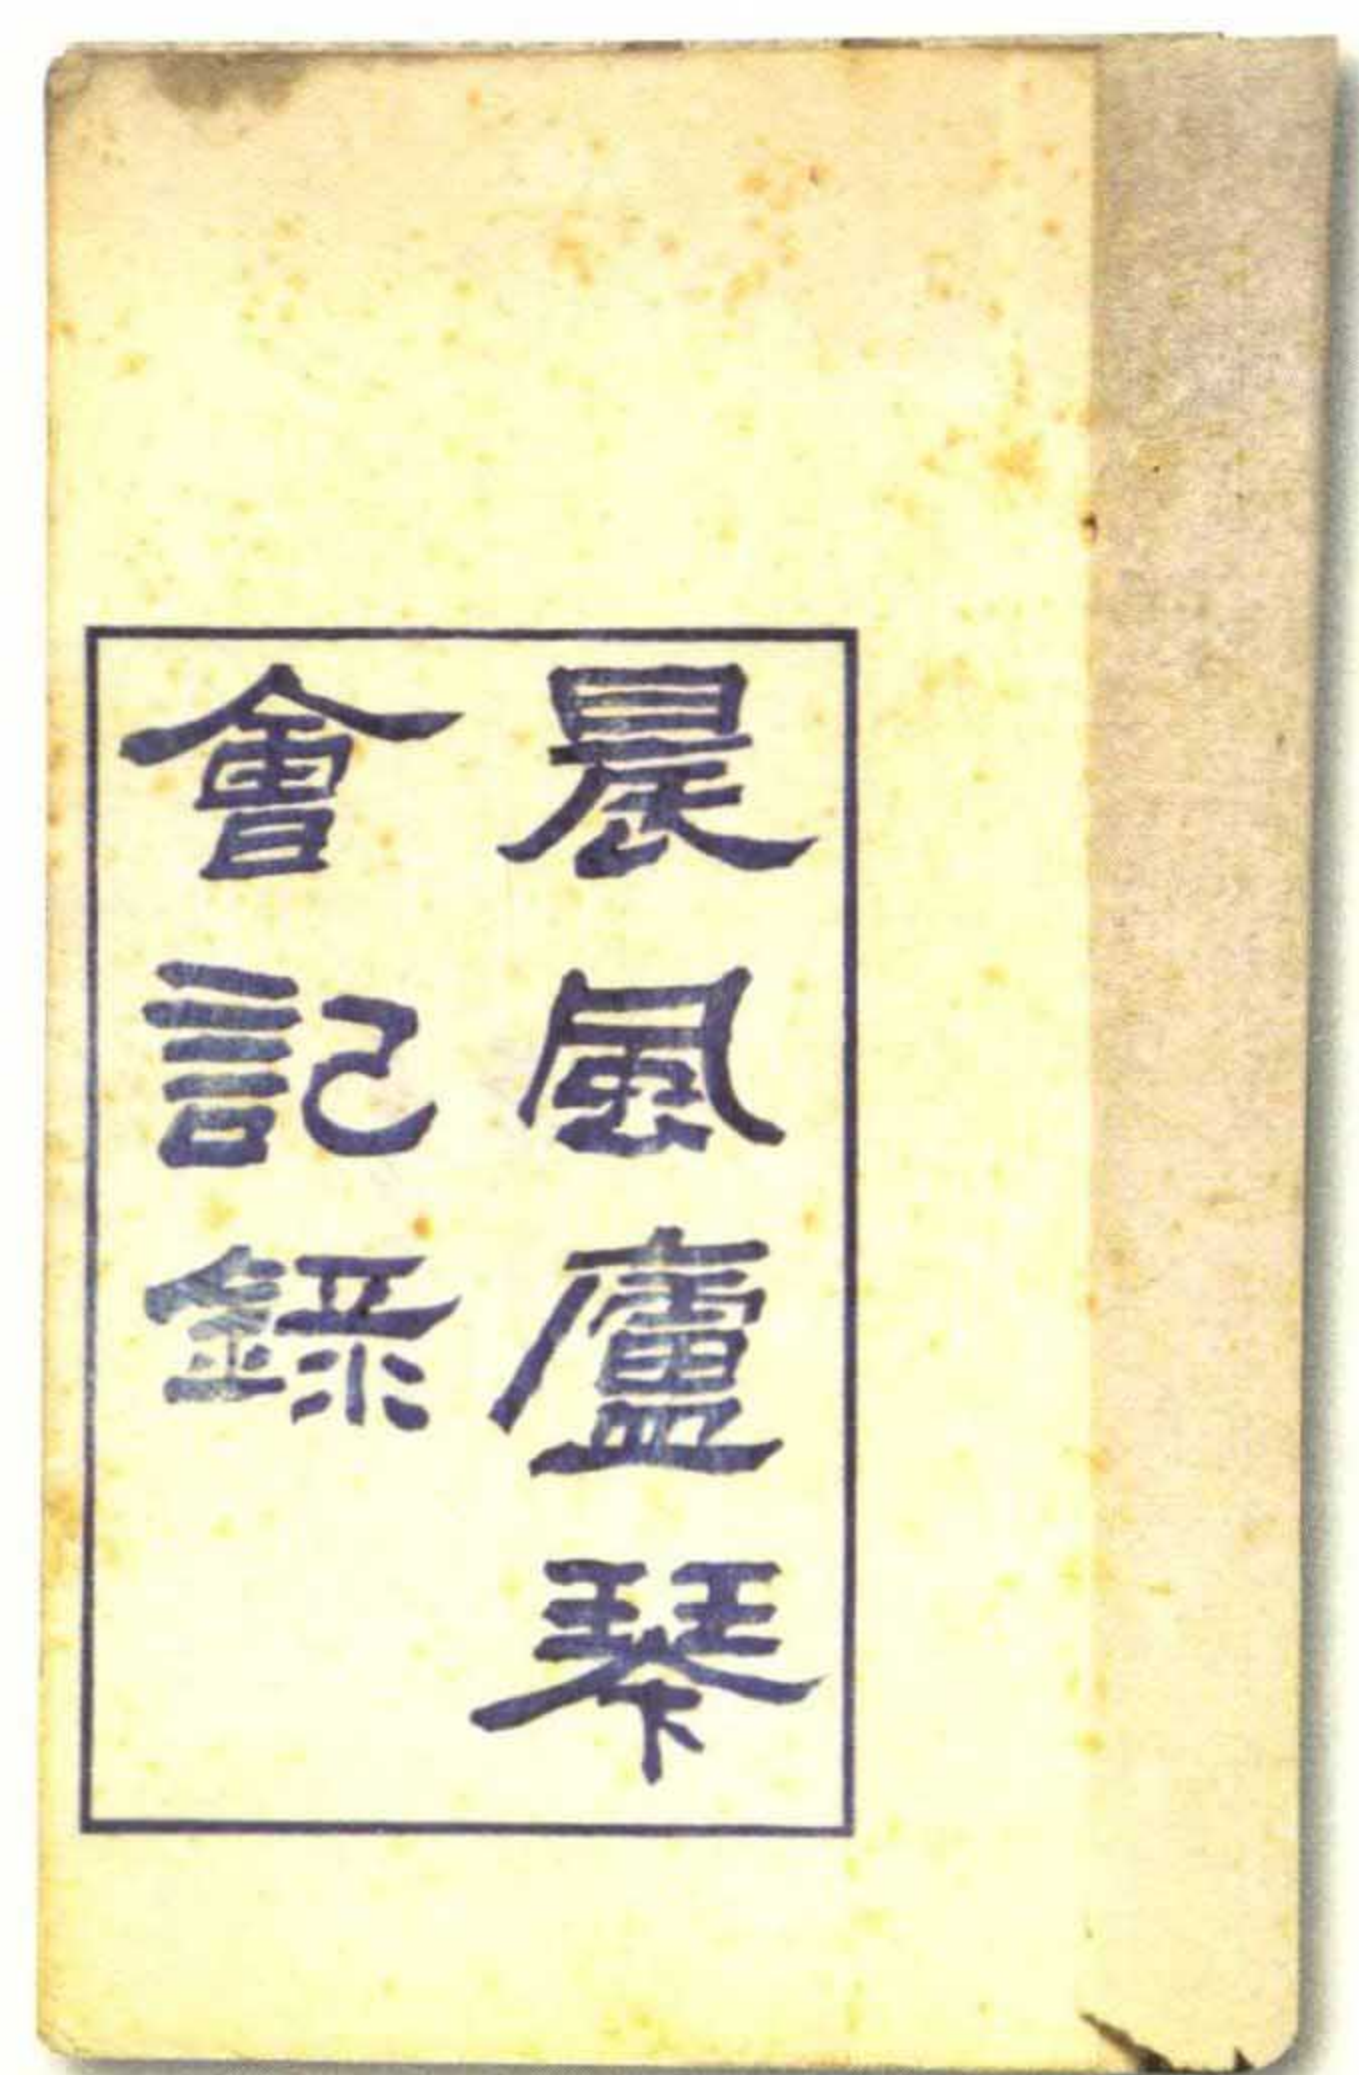 晨風廬琴
會記録